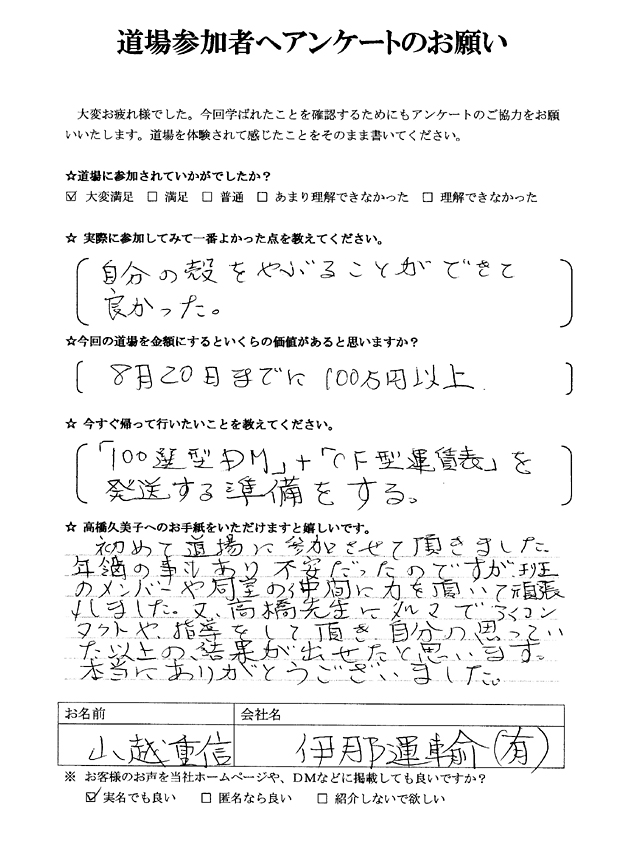 道場参加者へアンケートのお願い
大変お疲れ様でした。今回学ばれたことを確認するためにもアンケートのご協力をお願
いいたします。道場を体験されて感じたことをそのまま書いてください。
☆道場に参加されていかがでしたか？
☑ 大変満足 □ 満足 □ 普通 □ あまり理解できなかった □ 理解できなかった
☆ 実際に参加してみて一番よかった点を教えてください。
自分の殻をやぶることができて
良かった。
☆今回の道場を金額にするといくらの価値があると思いますか？
8月20日までに100万円以上
☆ 今すぐ帰って行いたいことを教えてください。
「100選型DM」+「OF型運賃表」を
発送する準備をする。
☆ 高橋久美子へのお手紙をいただけますと嬉しいです。
初めて道場に参加させて頂きました
年齢の事もあり不安だったのですが、班
のメンバーや同室の仲間に力を頂いて頑張
りました。又、高橋先生に
タクトや、指導をして頂き自分の思ってい
た以上の、結果が出せたと思います。
本当にありがとうございました。
お名前 会社名
山越重信 伊那運輸(有)
※ お客様のお声を当社ホームページや、DMなどに掲載しても良いですか？
☑ 実名でも良い □ 匿名なら良い □ 紹介しないで欲しい